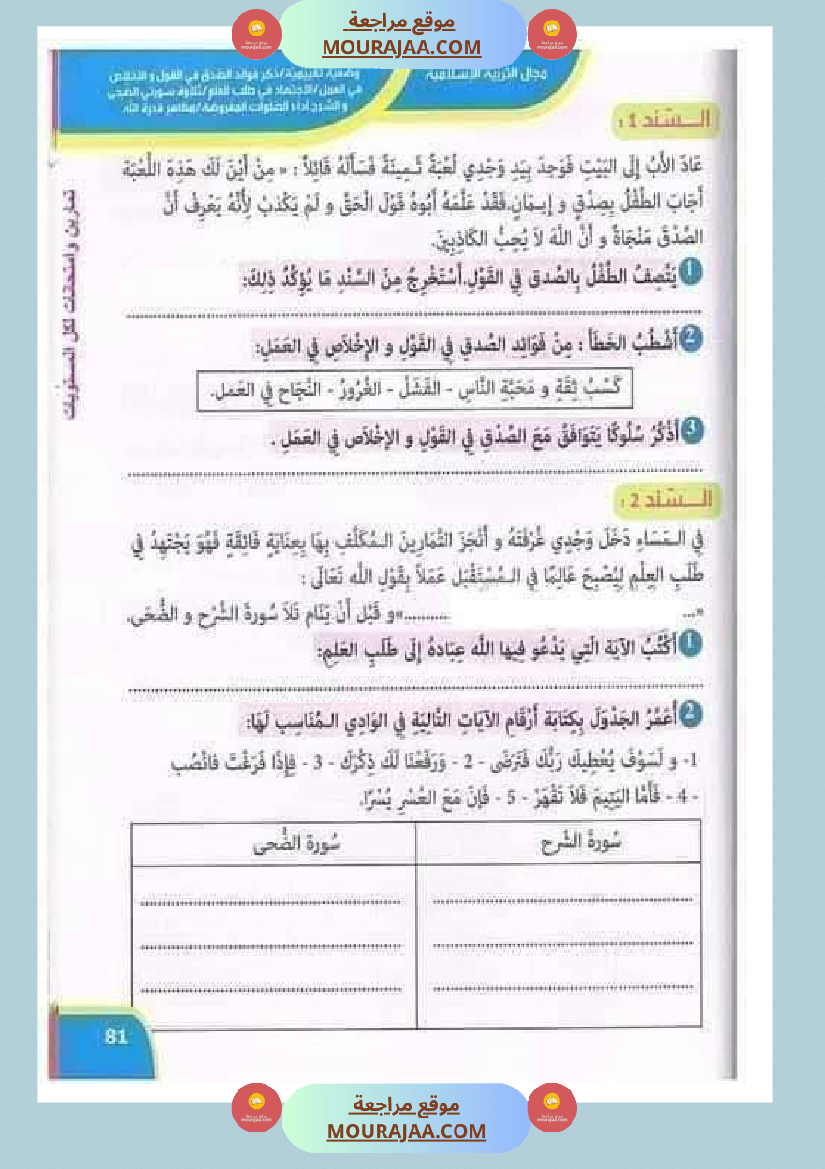 موقع مراجعة
MOURAJAA.COM
مجال التربية الإسلامية
وضعية تقييمية / ذكر فوائد الصدق في القول و الإخلاص
في العمل / الاجتهاد في طلب العلم / تلاوة سورتي الضحى
و الشرح / أداء الصلوات المفروضة / مظاهر قدرة الله
الـــسّند 1 :
عَادَ الأَبُ إِلَى البَيْتِ فَوَجَدَ بِيَدِ وَجْدِي لُعْبَةً ثَـمِينَةً فَسَأَلَهُ قَائِلاً : « مِنْ أَيْنَ لَكَ هَذِهِ اللُّعْبَة
أَجَابَ الطِّفْلُ بِصِدْقٍ و إِيـمَانٍ.فَقَدْ عَلَّمَهُ أَبُوهُ قَوْلَ الْحَقِّ و لَمْ يَكْذِبْ لِأَنَّهُ يَعْرِفُ أَنَّ
الصِّدْقَ مَنْجَاةٌ و أَنَّ اللهَ لاَ يُحِبُّ الكَاذِبِينَ.
1 يَتَّصِفُ الطِّفْلُ بِالصِّدق فِي القَوْلِ.أَسْتَخْرِجُ مِنَ السَّنْدِ مَا يُؤَكِّدُ ذِلِكَ:
2 أَشْطُبُ الخَطَأَ : مِنْ فَوَائِدِ الصِّدقِ فِي القَوْلِ و الإِخْلاَصِ فِي العَمَلِ:
كَسْبُ ثِقَةِ و مَحَبَّةِ النَّاسِ - الفَشَلُ - الغُرُورُ - النَّجَاح فِي العَمل.
3 أَذْكُرُ سُلُوكًا يَتَوَافَقُ مَعَ الصِّدْقِ فِي القَوْلِ و الإِخْلاَصِ فِي العَمَلِ .
الـــسّند 2 :
فِي الـمَسَاءِ دَخَلَ وَجْدِي غُرْفَتَهُ و أَنْجَزَ التَّمَارِينَ الـمُكَلَّفِ بِهَا بِعِنَايَةٍ فَائِقَةٍ فَهُوَ يَجْتَهِدُ فِي
طَلَبِ العِلْمِ لِيُصْبِحَ عَالِمًا فِي الـمُسْتَقْبَلِ عَمَلاً بِقَوْلِ الله تَعَالَى :
«... ..........»و قَبْلَ أَنْ يَنَامَ تَلاَ سُورةَ الشَّرْحِ و الضُّحَى.
1 أَكْتُبُ الآيَةَ الَتِي يَدْعُو فِيهَا اللَّه عِبَادهُ إِلَى طَلَبِ العَلِمِ:
2 أُعَمِّرُ الجَدْوَلَ بِكِتَابَة أَرْقَامِ الآيَاتِ التَّالِيَةِ فِي الوَادِي الـمُنَاسِبِ لَهَا:
1- و لَسَوْفَ يُعْطِيكَ رَبُّكَ فَتَرْضَى - 2 - وَرَفَعْنَا لَكَ ذِكْرَكَ - 3 - فَإِذَا فَرَغْتَ فَانْصَب
- 4 - فَأَمَّا اليَتِيمَ فَلاَ تَقْهَرْ - 5 - فَإِنَ مَعَ العُسْرِ يُسْرًا.
سُورةَ الشَّرح
سُورة الضُّحى
تمارين وامتحانات لكل المستويات
81
موقع مراجعة
MOURAJAA.COM